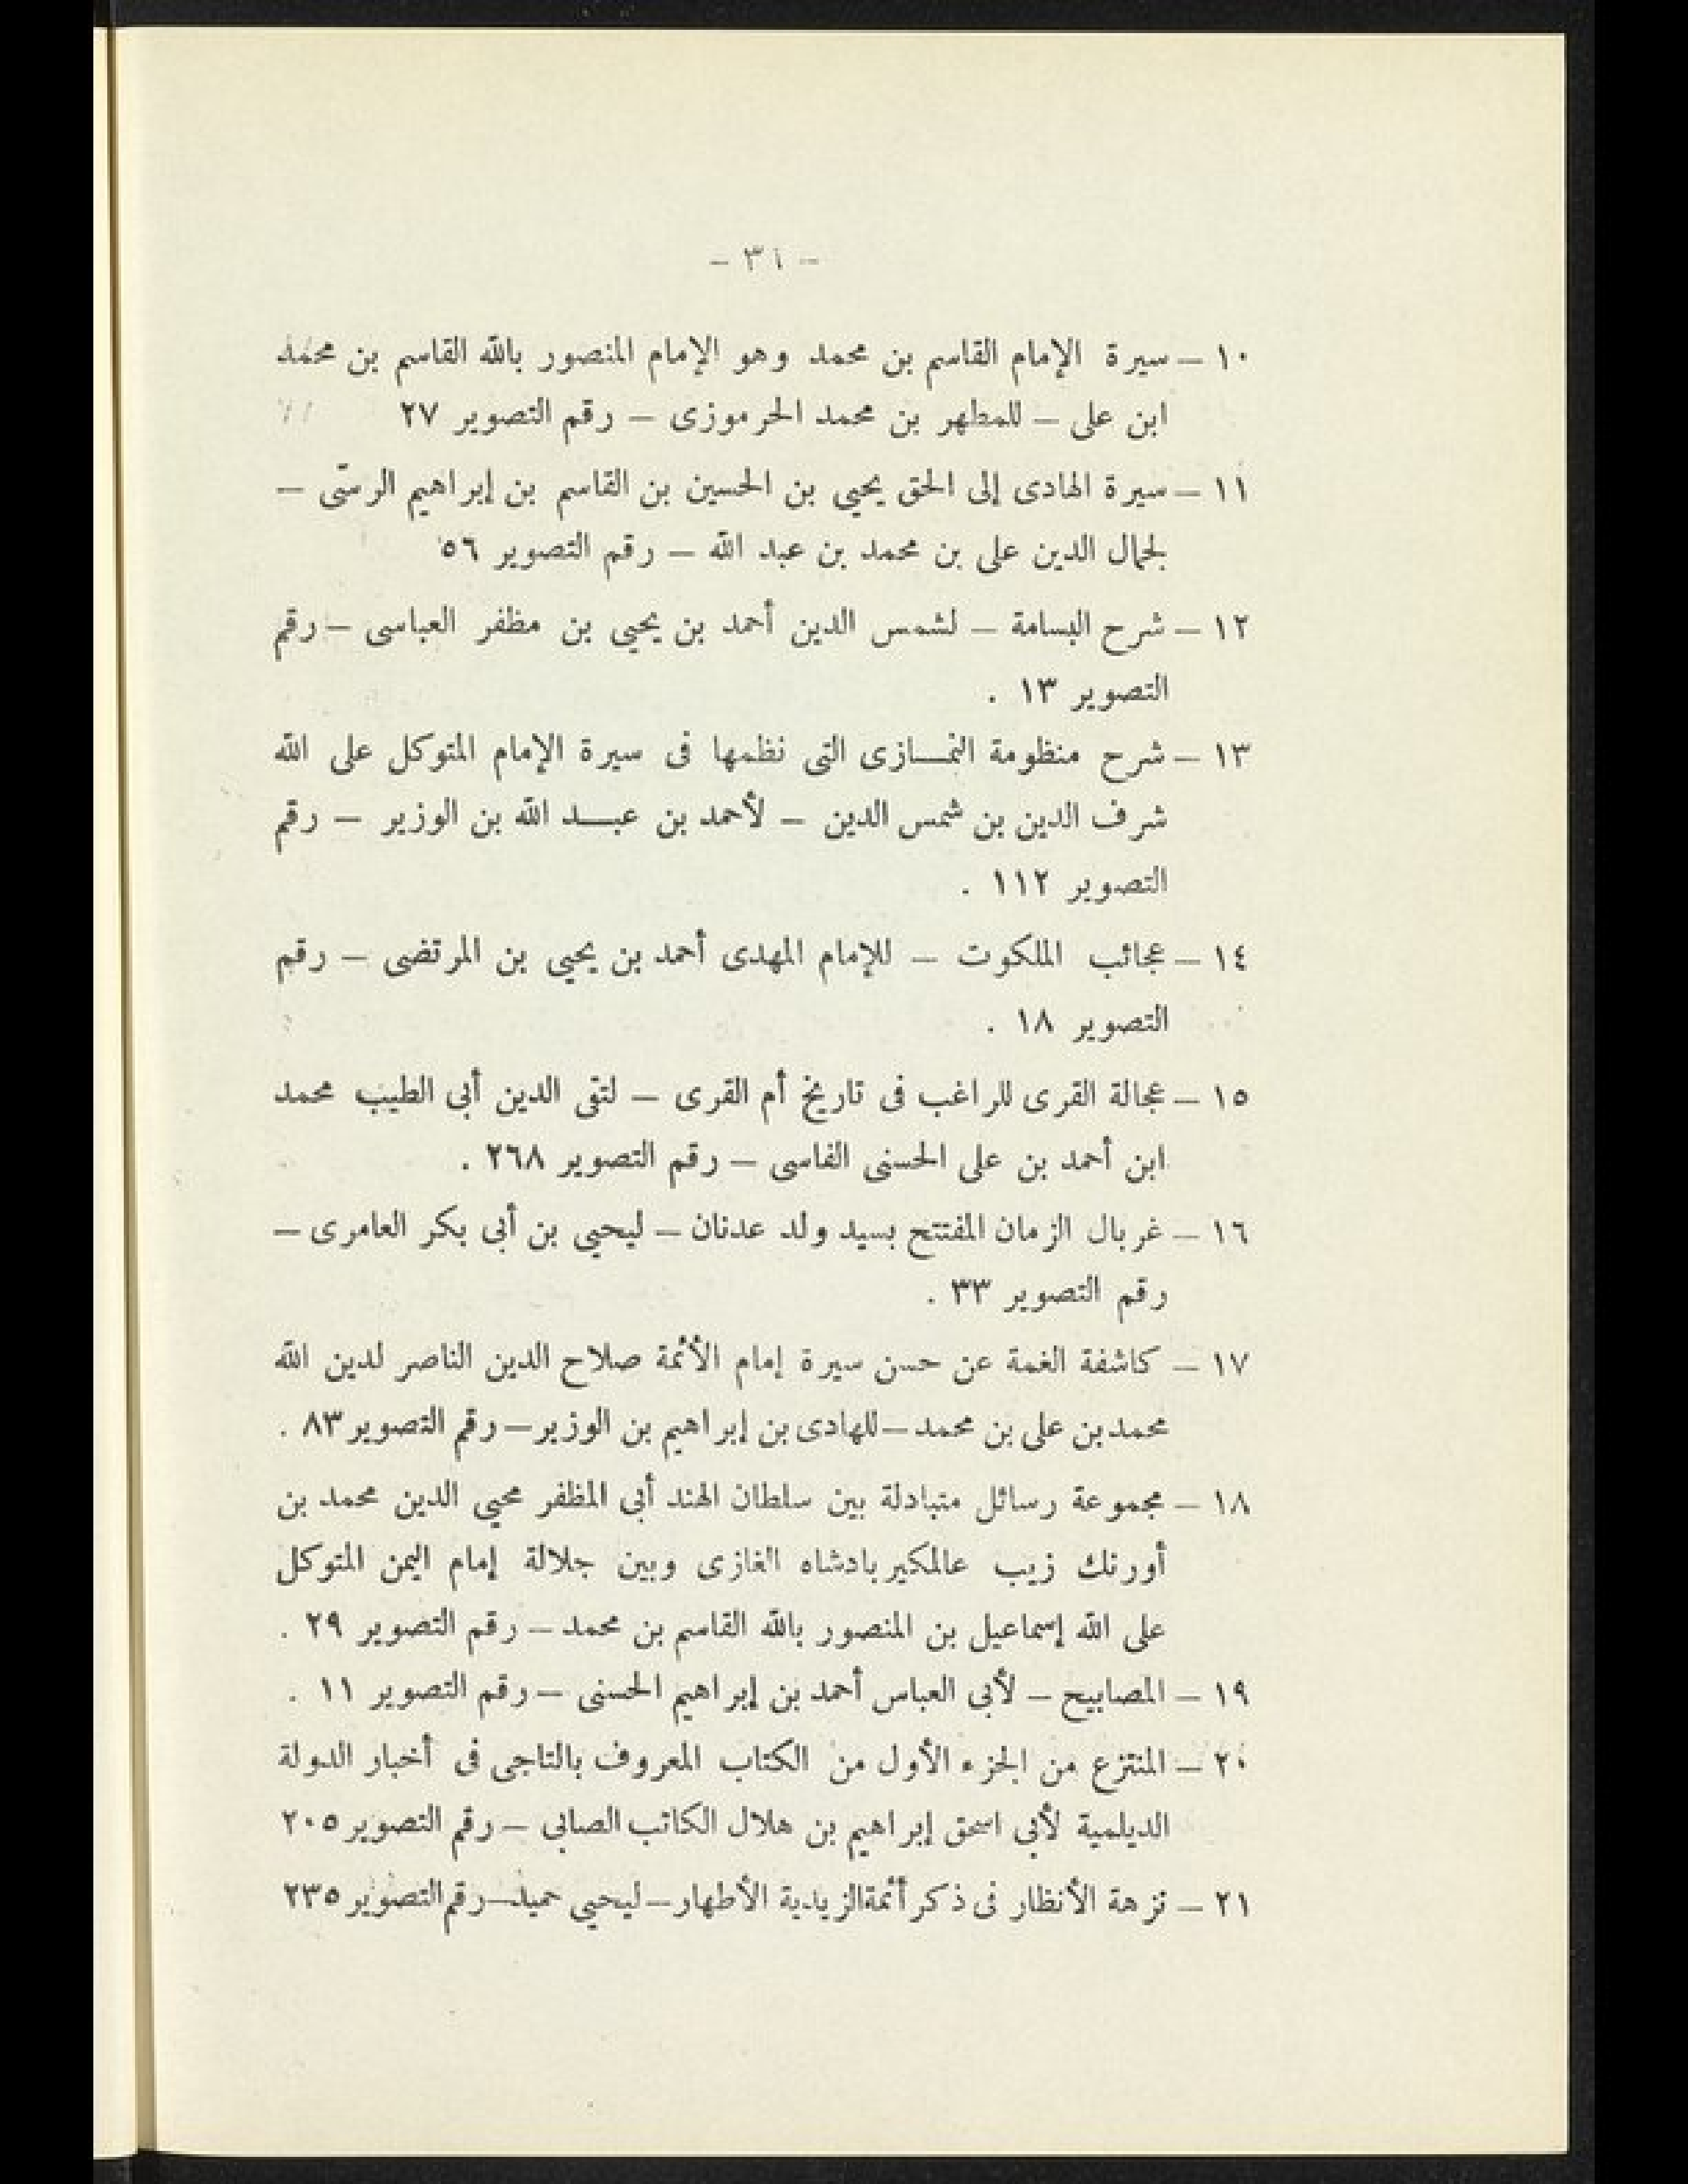 – ٣١ –
١٠ – سيرة الإمام القاسم بن محمد وهو الإمام المنصور بالله القاسم بن محمد
ابن على – للمطهر بن محمد الحرموزى – رقم التصوير ٢٧
١١ – سيرة الهادى إلى الحق يحيى بن الحسين بن القاسم بن إبراهيم الرسّى –
لجمال الدين على بن محمد بن عبد الله – رقم التصوير ٥٦
١٢ – شرح البسامة – لشمس الدين أحمد بن يحيى بن مظفر العباسى – رقم
التصوير ١٣ .
١٣ – شرح منظومة النمــازى التى نظمها فى سيرة الإمام المتوكل على الله
شرف الدين بن شمس الدين – لأحمد بن عبــد الله بن الوزير – رقم
التصوير ١١٢ .
١٤ – عجائب الملكوت – للإمام المهدى أحمد بن يحيى بن المرتضى – رقم
التصوير ١٨ .
١٥ – عجالة القرى للراغب فى تاريخ أم القرى – لتقى الدين أبى الطيب محمد
ابن أحمد بن على الحسنى الفاسى – رقم التصوير ٢٦٨ .
١٦ – غربال الزمان المفتتح بسيد ولد عدنان – ليحيى بن أبى بكر العامرى –
رقم التصوير ٣٣ .
١٧ – كاشفة الغمة عن حسن سيرة إمام الأئمة صلاح الدين الناصر لدين الله
محمد بن على بن محمد – للهادى بن إبراهيم بن الوزير – رقم التصوير ٨٣ .
١٨ – مجموعة رسائل متبادلة بين سلطان الهند أبى المظفر محيى الدين محمد بن
أورنك زيب عالمكير بادشاه الغازى وبين جلالة إمام اليمن المتوكل
على الله إسماعيل بن المنصور بالله القاسم بن محمد – رقم التصوير ٢٩ .
١٩ – المصابيح – لأبى العباس أحمد بن إبراهيم الحسنى – رقم التصوير ١١ .
٢٠ – المنتزع من الجزء الأول من الكتاب المعروف بالتاجى فى أخبار الدولة
الديلمية لأبى اسحق إبراهيم بن هلال الكاتب الصابى – رقم التصوير ٢٠٥
٢١ – نزهة الأنظار فى ذكر أئمة الزيدية الأطهار – ليحيى حميد – رقم التصوير ٢٣٥